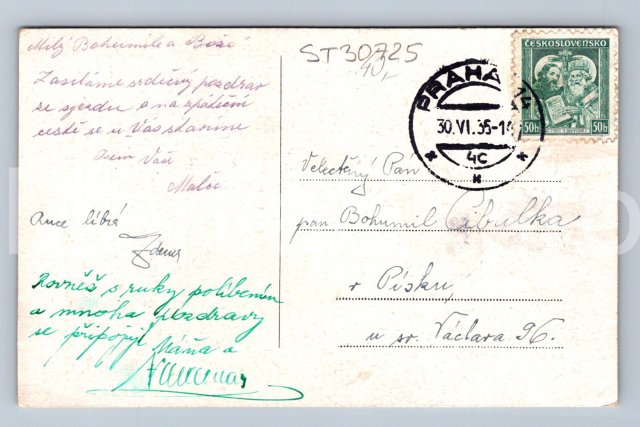 Milý Bohumile a Bože
Zasíláme srdečný pozdrav
ze sjezdu a na zpáteční
cestě se u Vás stavíme
Vaše
Ruce líbá
Zdeněk
Rovněž s ruky políbením
a mnoha pozdravy
se připojují
Máňa a
ST30725
40,-
PRAHA 14
30.VI.35-1
4C
ČESKOSLOVENSKO
50h 50h
Velectěný Pán
pan Bohumil Cibulka
v Písku,
u sv. Václava 96.